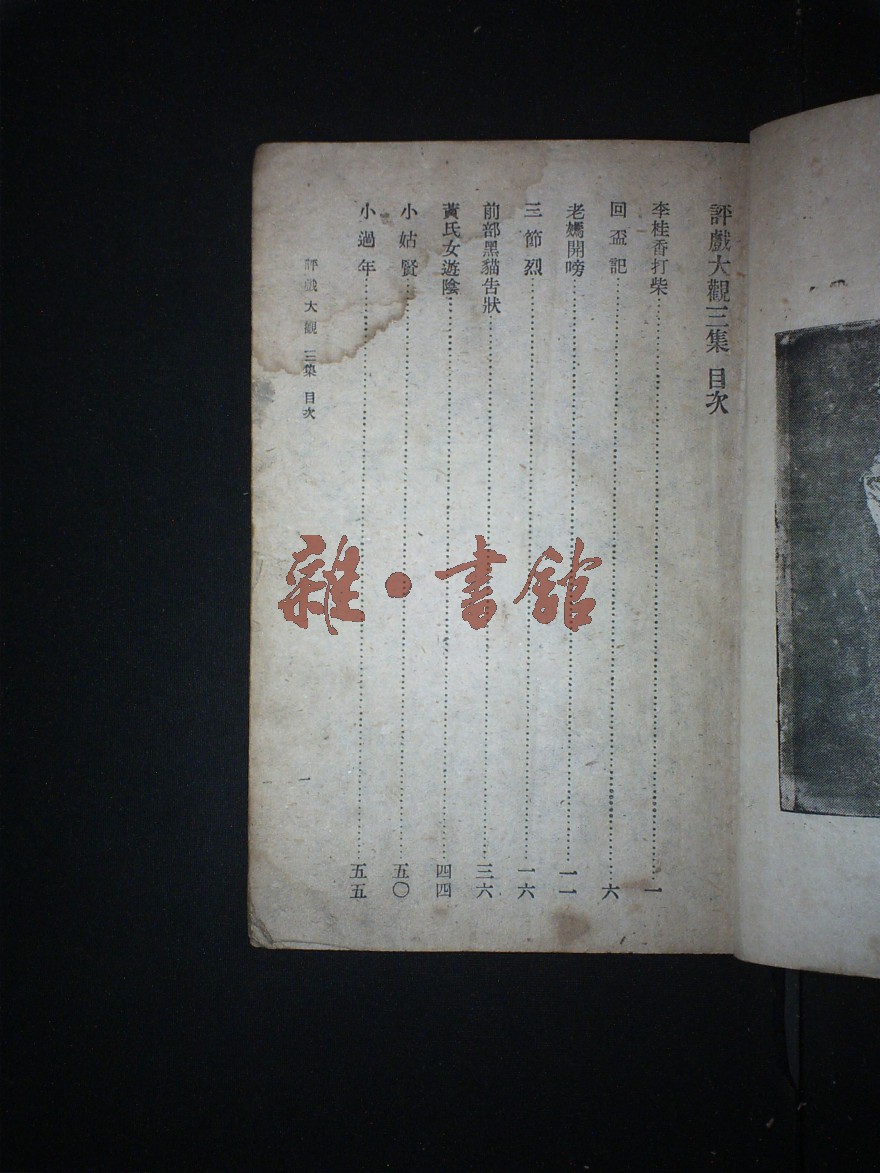 評戲大觀三集 目次
李桂香打柴 一
回盃記 六
老媽開嗙 一一
三節烈 一六
前部黑貓告狀 三六
黃氏女遊陰 四四
小姑賢 五〇
小過年 五五
評戲大觀 三集 目次
一
雜·書館